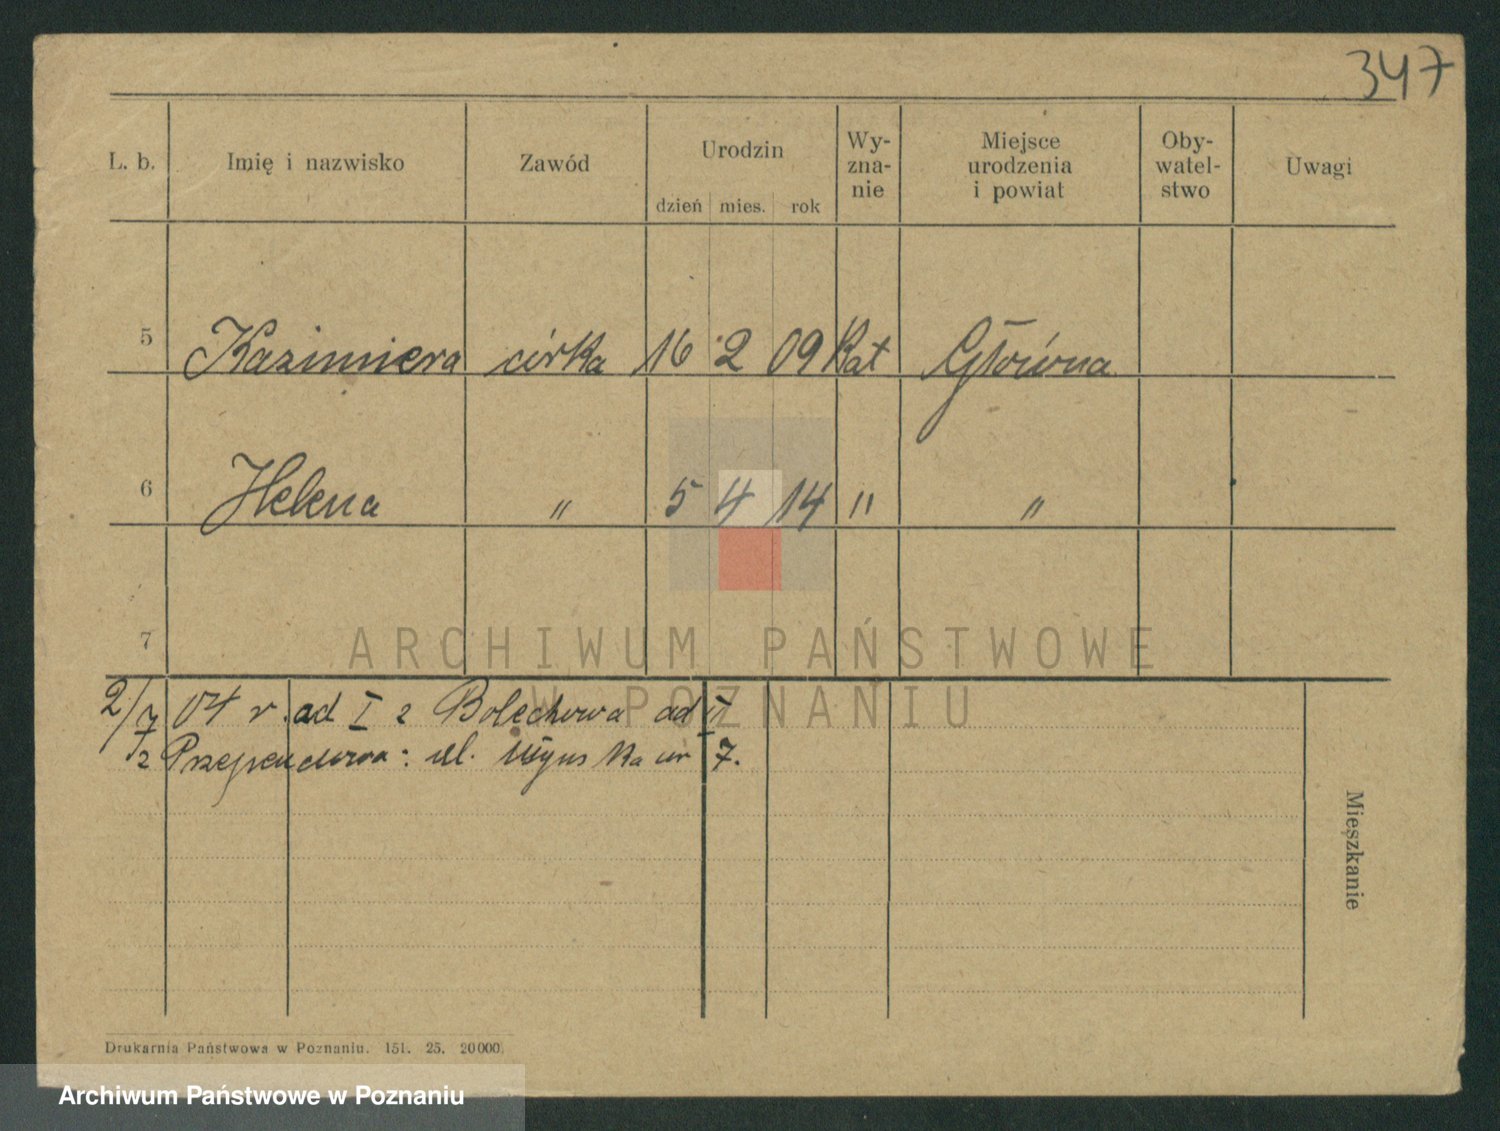 347
L. b. Imię i nazwisko Zawód Urodzin Wy-zna-nie Miejsce urodzenia i powiat Oby-watel-stwo Uwagi
dzień mies. rok
5 Kazimiera córka 16 2 09 Kat Główna
6 Helena " 5 4 14 " "
7
ARCHIWUM PAŃSTWOWE
W POZNANIU
2/7 04 r. ad I z Bolechowa ad II
z Przependowa: ul. nr 7.
Mieszkanie
Drukarnia Państwowa w Poznaniu. 151. 25. 20000.
Archiwum Państwowe w Poznaniu